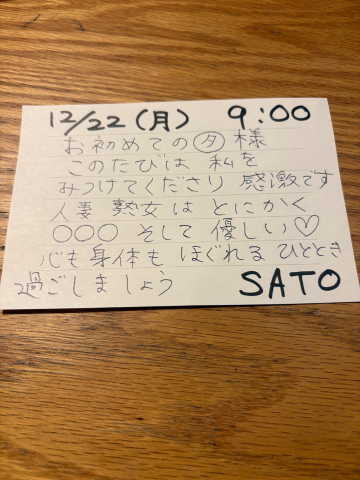 12/22(月) 9:00
お初めての㋟様
このたびは 私を
みつけてくださり 感激です
人妻 熟女は とにかく
○○○ そして 優しい♡
心も身体も ほぐれる ひととき
過ごしましょう SATO